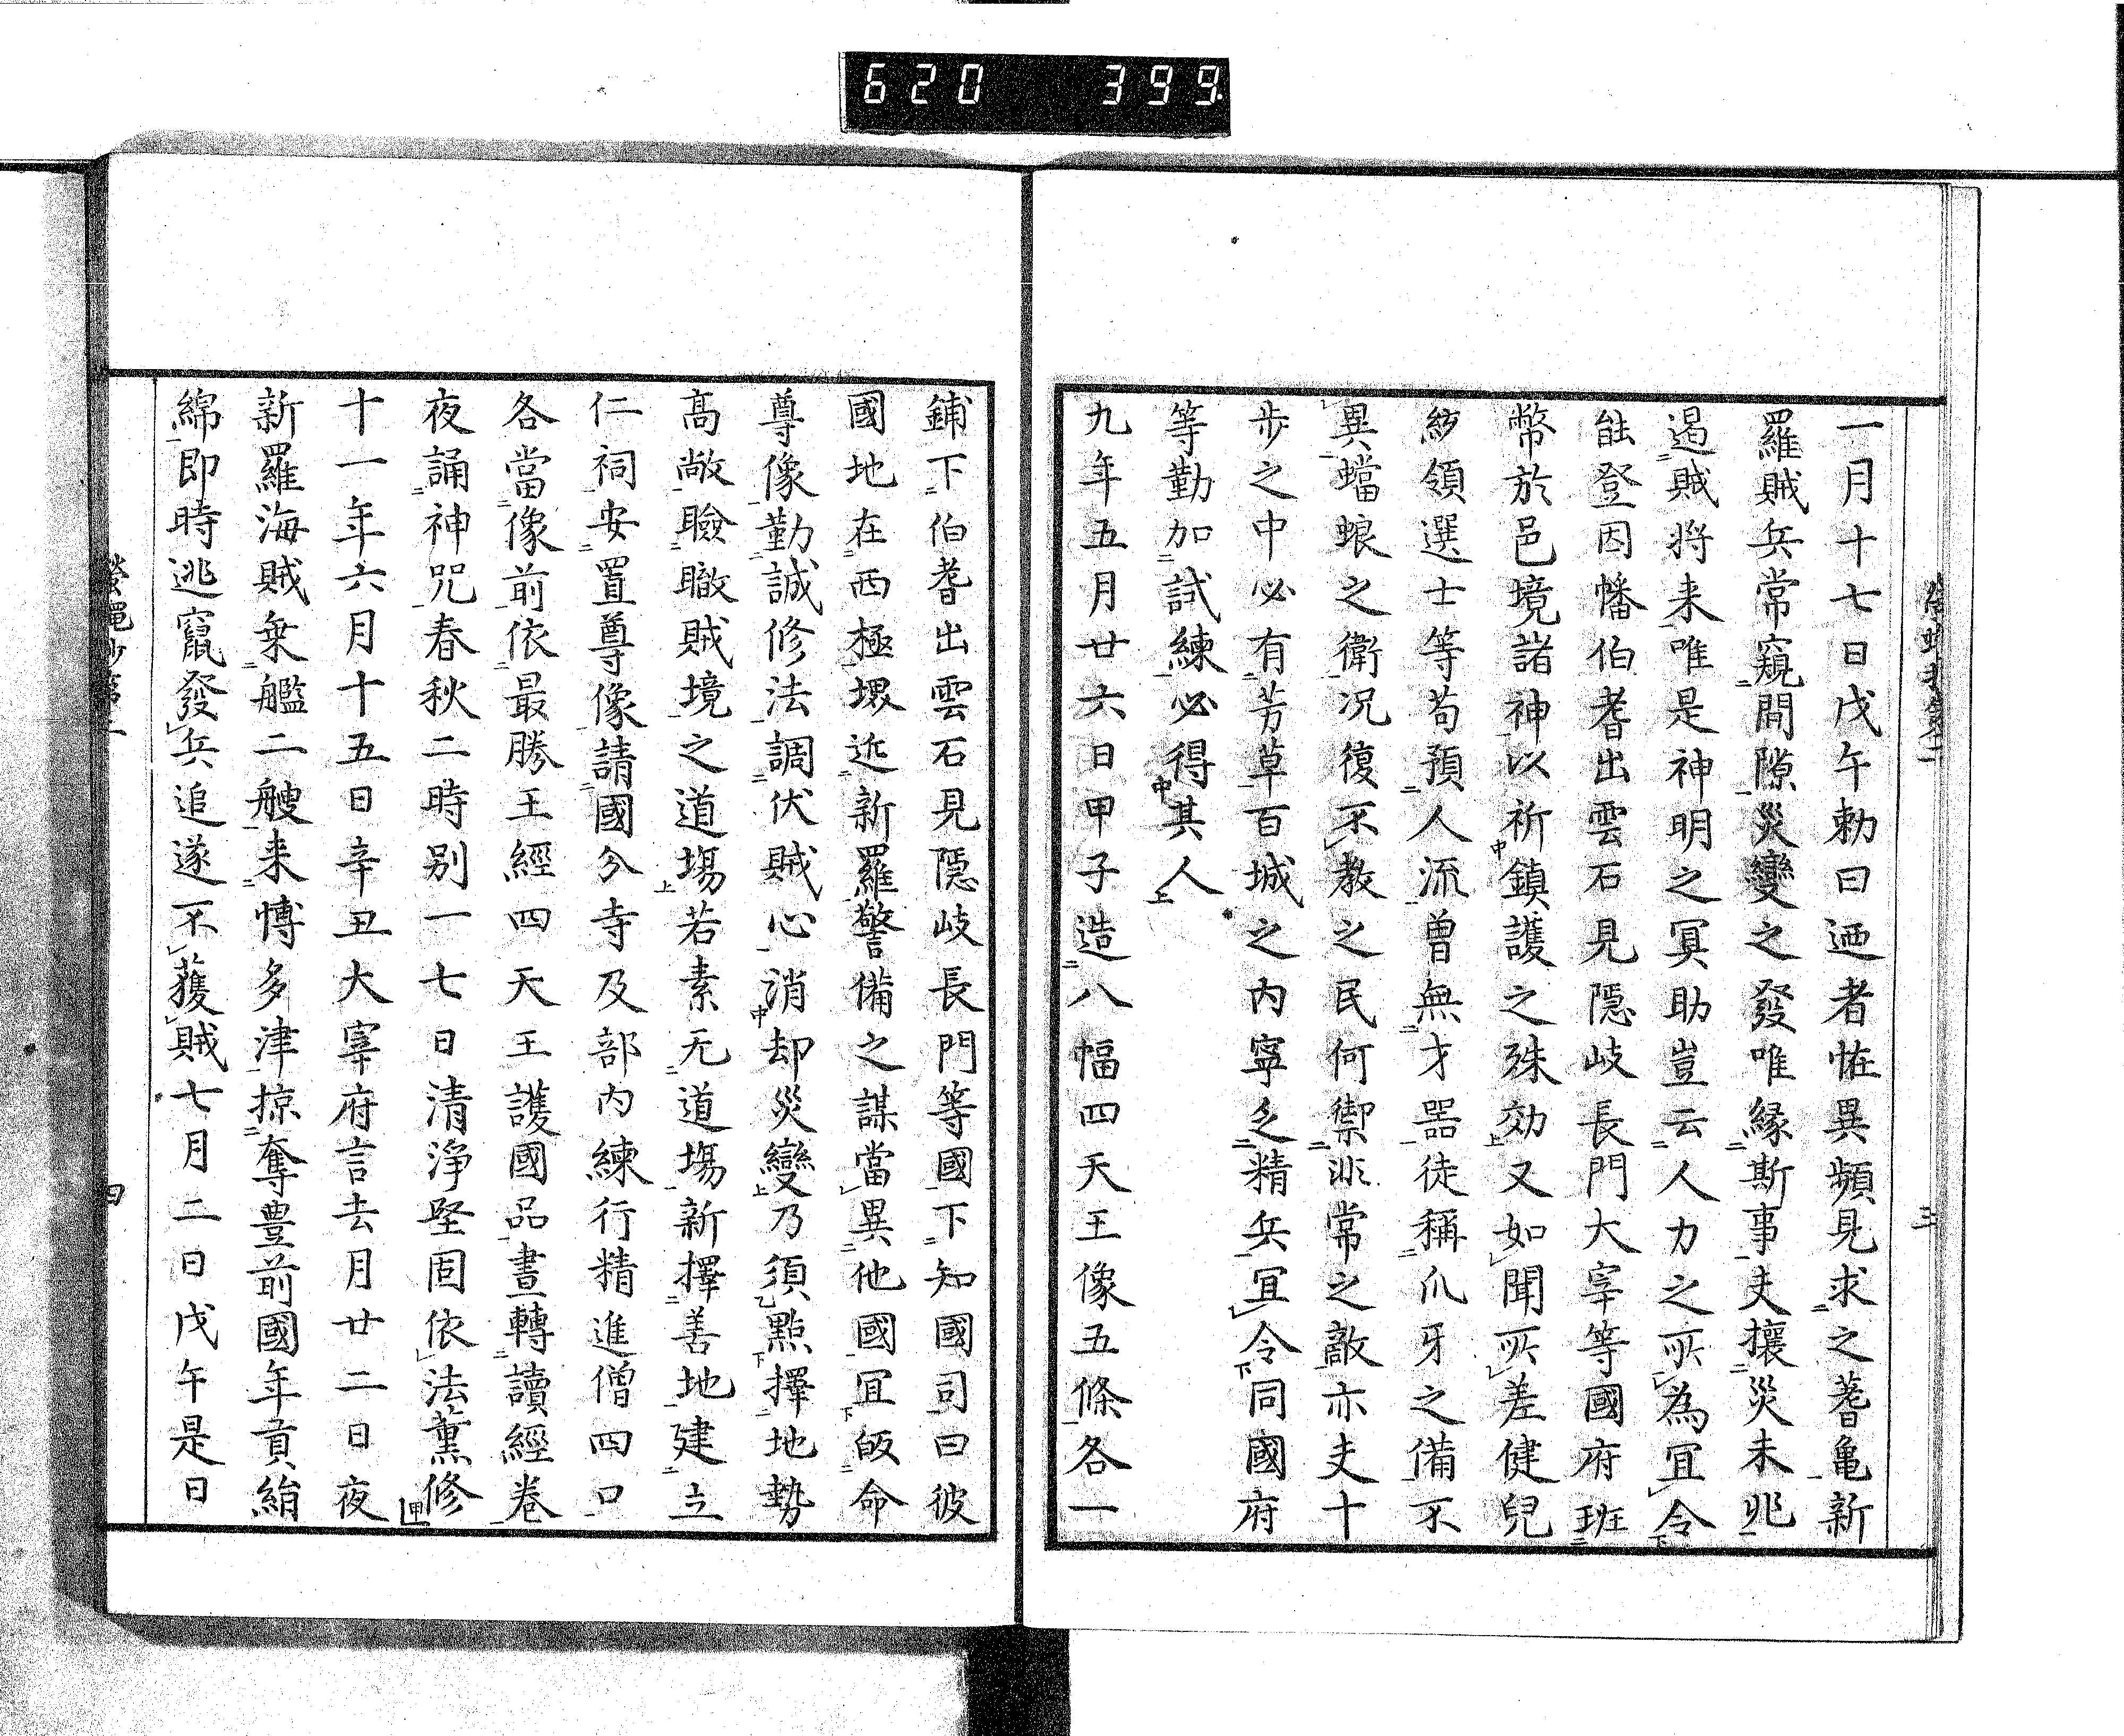 620 399
一月十七日戊午勅曰迺者恠異頻見求之蓍亀新
羅賊兵常窺間隙災變之發唯縁斯事夫攘災未兆
遏賊将来唯是神明之冥助豈云人力之所為冝令
能登因幡伯耆出雲石見隠岐長門大宰等國府班
幣於邑境諸神以祈鎮護之殊効又如聞所差健兒
統領選士等苟預人流曽無才器徒稱爪牙之備不
異蟷蜋之衛况復不教之民何禦非常之敵亦夫十
歩之中必有芳草百城之内寧乏精兵冝令同國府
等勤加試練必得其人
九年五月廿六日甲子造八幅四天王像五條各一
鋪下伯耆出雲石見隠岐長門等國下知國司曰彼
國地在西極堺近新羅警備之謀當異他國冝皈命
尊像勤誠修法調伏賊心消却災變乃須點擇地勢
髙敞瞼瞰賊境之道塲若素无道塲新擇善地建立
仁祠安置尊像請國分寺及部内練行精進僧四口
各當像前依最勝王經四天王護國品晝轉讀經巻
夜誦神咒春秋二時別一七日清浄堅固依法薫修
十一年六月十五日辛丑大宰府言去月廿二日夜
新羅海賊乗艦二艘来博多津掠奪豊前國年貢絹
綿即時逃竄發兵追遂不獲賊七月二日戊午是日
三
四